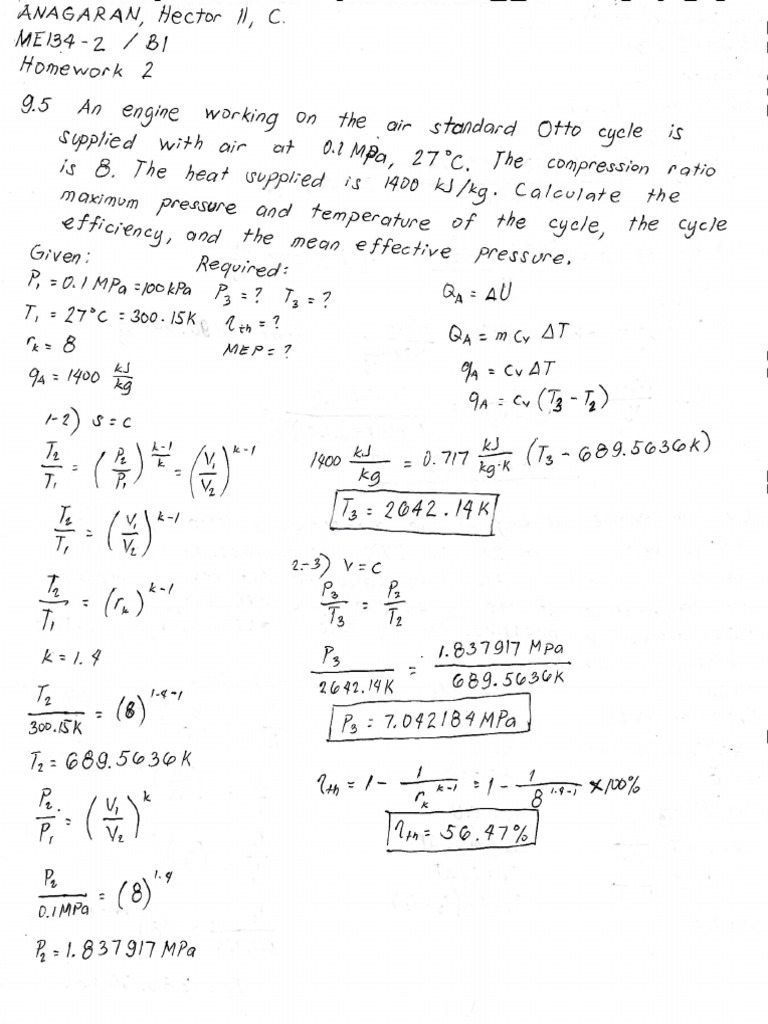 ANAGARAN, Hector II, C.
ME134-2 / B1
Homework 2
9.5 An engine working on the air standard Otto cycle is
supplied with air at 0.1 MPa, 27°C. The compression ratio
is 8. The heat supplied is 1400 kJ/kg. Calculate the
maximum pressure and temperature of the cycle, the cycle
efficiency, and the mean effective pressure.
Given:
P₁ = 0.1 MPa = 100 kPa
T₁ = 27°C = 300.15K
rₖ = 8
q_A = 1400 kJ/kg
Required:
P₃ = ? T₃ = ?
η_th = ?
MEP = ?
Q_A = ΔU
Q_A = m Cv ΔT
q_A = Cv ΔT
q_A = Cv (T₃ - T₂)
1-2) s = c
T₂/T₁ = (P₂/P₁)^(k-1/k) = (V₁/V₂)^(k-1)
T₂/T₁ = (V₁/V₂)^(k-1)
T₂/T₁ = (rₖ)^(k-1)
k = 1.4
T₂/300.15K = (8)^(1.4-1)
T₂ = 689.5636K
P₂/P₁ = (V₁/V₂)^k
P₂/0.1MPa = (8)^1.4
P₂ = 1.837917 MPa
1400 kJ/kg = 0.717 kJ/kg·K (T₃ - 689.5636K)
T₃ = 2642.14K
2-3) V = C
P₃/T₃ = P₂/T₂
P₃/2642.14K = 1.837917 MPa/689.5636K
P₃ = 7.042184 MPa
η_th = 1 - 1/rₖ^(k-1) = 1 - 1/8^(1.4-1) × 100%
η_th = 56.47%